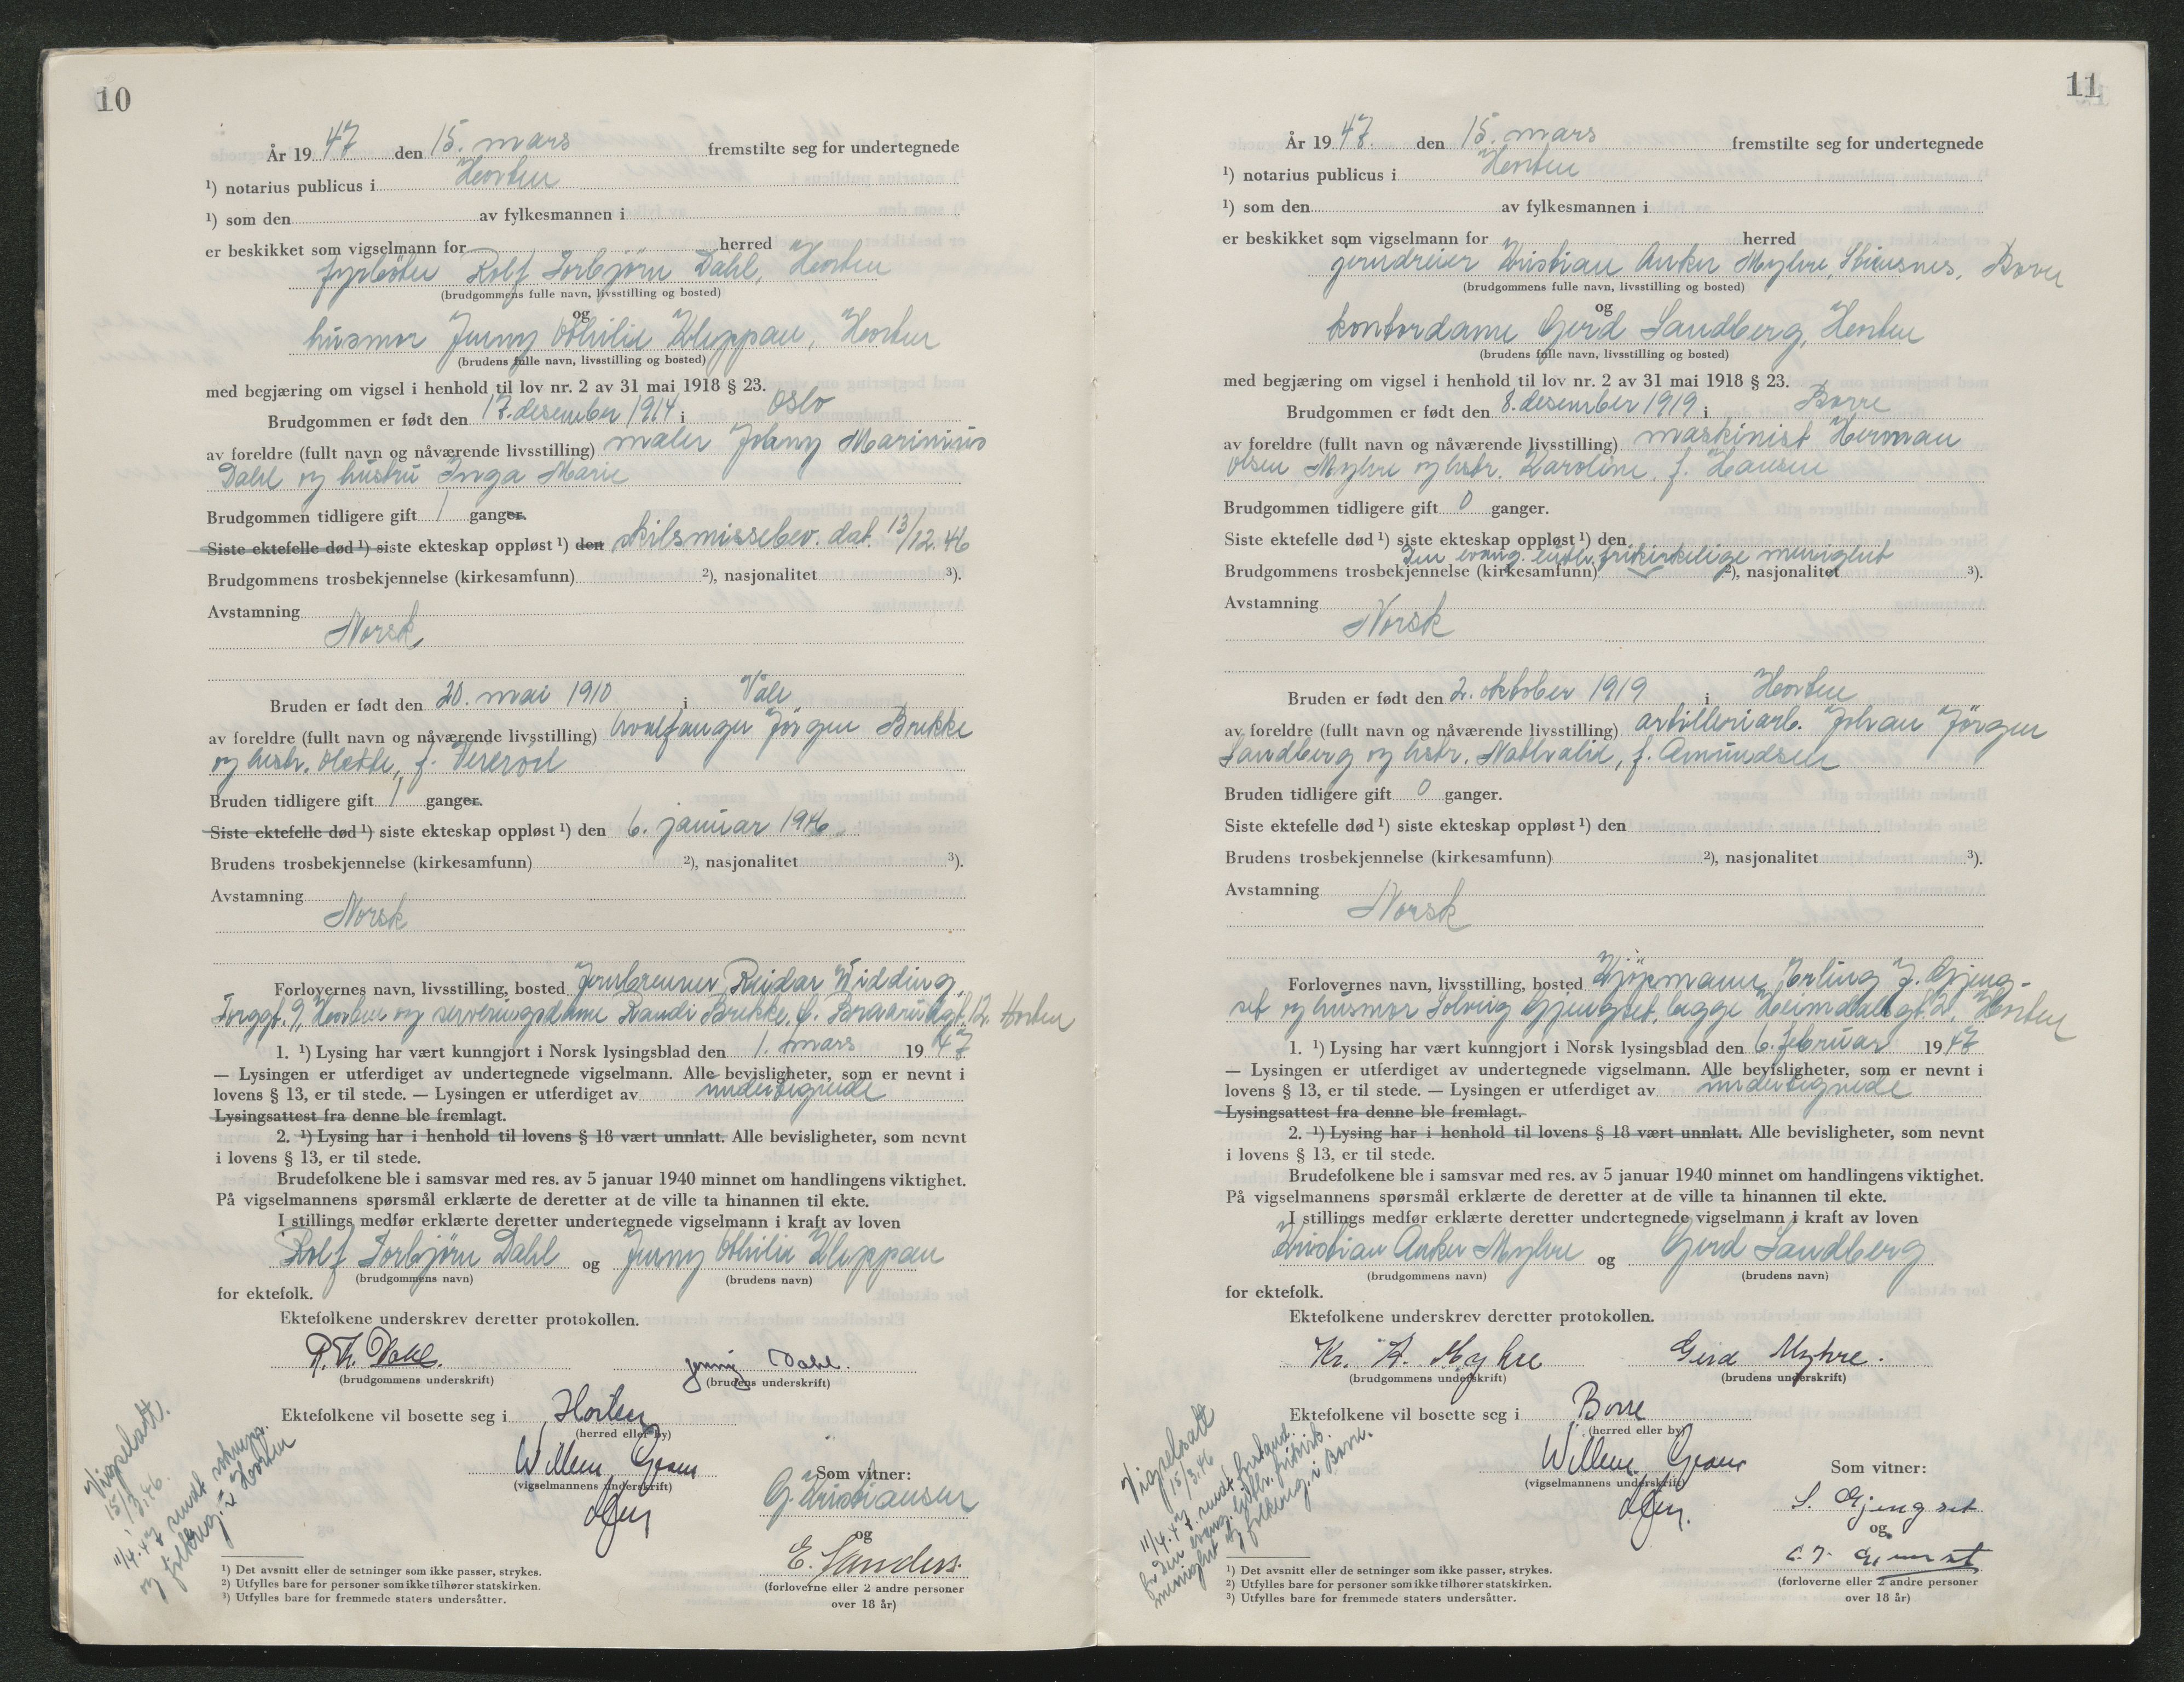 10
År 19 47 den 15. mars fremstilte seg for undertegnede
¹) notarius publicus i Horten
¹) som den av fylkesmannen i
er beskikket som vigselmann for herred
fyrbøter Rolf Torbjörn Dahl, Horten
(brudgommens fulle navn, livsstilling og bosted)
og
husmor Jenny Othilie Kleppan, Horten
(brudens fulle navn, livsstilling og bosted)
med begjæring om vigsel i henhold til lov nr. 2 av 31 mai 1918 § 23.
Brudgommen er født den 17. desember 1914 i Oslo
av foreldre (fullt navn og nåværende livsstilling) maler Johny Marinius
Dahl og hustru Inga Marie
Brudgommen tidligere gift 1 ganger.
Siste ektefelle død ¹) siste ekteskap oppløst ¹) den skilsmissebev. dat. 13/12.46
Brudgommens trosbekjennelse (kirkesamfunn) ²), nasjonalitet ³).
Avstamning
Norsk
Bruden er født den 20. mai 1910 i Våle
av foreldre (fullt navn og nåværende livsstilling) hvalfanger Jörgen Brekke
og hustr. Olette, f.
Bruden tidligere gift 1 ganger.
Siste ektefelle død ¹) siste ekteskap oppløst ¹) den 6. januar 1946.
Brudens trosbekjennelse (kirkesamfunn) ²), nasjonalitet ³).
Avstamning
Norsk
Forlovernes navn, livsstilling, bosted Reidar Widding,
Torggt. 9, Horten og serveringsdame Randi Brekke, 12. Horten
1. ¹) Lysing har vært kunngjort i Norsk lysingsblad den 1. mars 19 47
— Lysingen er utferdiget av undertegnede vigselmann. Alle bevisligheter, som er nevnt i
lovens § 13, er til stede. — Lysingen er utferdiget av undertegnede
Lysingsattest fra denne ble fremlagt.
2. ¹) Lysing har i henhold til lovens § 18 vært unnlatt. Alle bevisligheter, som nevnt
i lovens § 13, er til stede.
Brudefolkene ble i samsvar med res. av 5 januar 1940 minnet om handlingens viktighet.
På vigselmannens spørsmål erklærte de deretter at de ville ta hinannen til ekte.
I stillings medfør erklærte deretter undertegnede vigselmann i kraft av loven
Rolf Torbjörn Dahl og Jenny Othilie Kleppan
(brudgommens navn) (brudens navn)
for ektefolk.
Ektefolkene underskrev deretter protokollen.
R. Th. Dahl. Jenny Dahl.
(brudgommens underskrift) (brudens underskrift)
Ektefolkene vil bosette seg i Horten
(herred eller by)
Willem Gram
(vigselmannens underskrift)
Som vitner:
G. Kristiansen
og
E. Sanders.
(forloverne eller 2 andre personer
over 18 år)
Vigselsatt.
15/3.46.
11/4.47 sendt soknepr.
og folkereg. i Horten
¹) Det avsnitt eller de setninger som ikke passer, strykes.
²) Utfylles bare for personer som ikke tilhører statskirken.
³) Utfylles bare for fremmede staters undersåtter.
11
År 19 47. den 15. mars fremstilte seg for undertegnede
¹) notarius publicus i Horten
¹) som den av fylkesmannen i
er beskikket som vigselmann for herred
jerndreier Kristian Anker Myhre, Borre
(brudgommens fulle navn, livsstilling og bosted)
og
kontordame Gerd Sandberg, Horten
(brudens fulle navn, livsstilling og bosted)
med begjæring om vigsel i henhold til lov nr. 2 av 31 mai 1918 § 23.
Brudgommen er født den 8. desember 1919 i Borre
av foreldre (fullt navn og nåværende livsstilling) maskinist Herman
Olsen Myhre og hstr. Karoline, f. Hansen
Brudgommen tidligere gift 0 ganger.
Siste ektefelle død ¹) siste ekteskap oppløst ¹) den
Den evang. luth. frikirkelige menighet
Brudgommens trosbekjennelse (kirkesamfunn) ²), nasjonalitet ³).
Avstamning
Norsk
Bruden er født den 2. oktober 1919 i Horten
av foreldre (fullt navn og nåværende livsstilling) artilleriarb. Johan Jörgen
Sandberg og hstr. Mathalie, f. Amundsen
Bruden tidligere gift 0 ganger.
Siste ektefelle død ¹) siste ekteskap oppløst ¹) den
Brudens trosbekjennelse (kirkesamfunn) ²), nasjonalitet ³).
Avstamning
Norsk
Forlovernes navn, livsstilling, bosted Kjöpmann Erling J. Gjeng-
set og husmor Solveig Gjengset, begge Heimdalsgt. 2, Horten
1. ¹) Lysing har vært kunngjort i Norsk lysingsblad den 6. februar 19 47
— Lysingen er utferdiget av undertegnede vigselmann. Alle bevisligheter, som er nevnt i
lovens § 13, er til stede. — Lysingen er utferdiget av undertegnede
Lysingsattest fra denne ble fremlagt.
2. ¹) Lysing har i henhold til lovens § 18 vært unnlatt. Alle bevisligheter, som nevnt
i lovens § 13, er til stede.
Brudefolkene ble i samsvar med res. av 5 januar 1940 minnet om handlingens viktighet.
På vigselmannens spørsmål erklærte de deretter at de ville ta hinannen til ekte.
I stillings medfør erklærte deretter undertegnede vigselmann i kraft av loven
Kristian Anker Myhre og Gerd Sandberg
(brudgommens navn) (brudens navn)
for ektefolk.
Ektefolkene underskrev deretter protokollen.
Kr. A. Myhre Gerd Myhre.
(brudgommens underskrift) (brudens underskrift)
Ektefolkene vil bosette seg i Borre
(herred eller by)
Willem Gram
(vigselmannens underskrift)
Som vitner:
S. Gjengset
og
(forloverne eller 2 andre personer
over 18 år)
Vigselsatt
15/3.46
11/4.47. sendt forstand.
for Den evang. luth. frikirk.
menighet og folkereg. i Borre.
¹) Det avsnitt eller de setninger som ikke passer, strykes.
²) Utfylles bare for personer som ikke tilhører statskirken.
³) Utfylles bare for fremmede staters undersåtter.